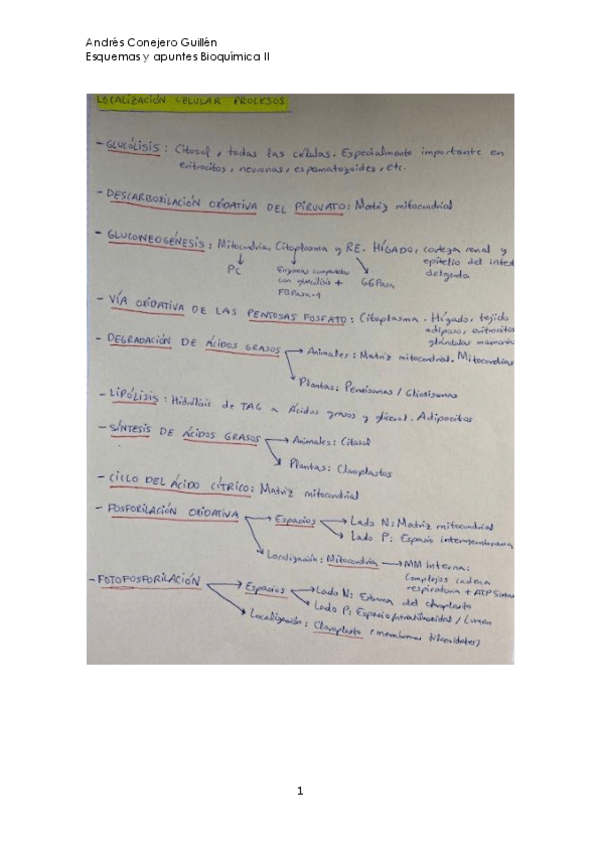 Andrés Conejero Guillén
Esquemas y apuntes Bioquímica II
LOCALIZACIÓN CELULAR PROCESOS
- GLUCÓLISIS: Citosol, todas las células. Especialmente importante en
eritrocitos, neuronas, espermatozoides, etc.
- DESCARBOXILACIÓN OXIDATIVA DEL PIRUVATO: Matriz mitocondrial
- GLUCONEOGÉNESIS: Mitocondria, Citoplasma y RE. HÍGADO, corteza renal y
PC Enzimas compartidas G6Pasa epitelio del intes
con glucólisis + delgado
FBPasa-1
- VÍA OXIDATIVA DE LAS PENTOSAS FOSFATO: Citoplasma. Hígado, tejido
adiposo, eritrocitos
glándulas mamaria
- DEGRADACIÓN DE ÁCIDOS GRASOS → Animales: Matriz mitocondrial. Mitocondrias
→ Plantas: Peroxisomas / Glioxisomas
- LIPÓLISIS: Hidrólisis de TAG a Ácidos grasos y glicerol. Adipocitos
- SÍNTESIS DE ÁCIDOS GRASOS → Animales: Citosol
→ Plantas: Cloroplastos
- CICLO DEL ÁCIDO CÍTRICO: Matriz mitocondrial
- FOSFORILACIÓN OXIDATIVA → Espacios → Lado N: Matriz mitocondrial
→ Lado P: Espacio intermembrana
→ Localización: Mitocondria → MM Interna:
Complejos cadena
respiratoria + ATP Sintasa
- FOTOFOSFORILACIÓN → Espacios → Lado N: Estroma del cloroplasto
→ Lado P: Espacio intratilacoidal / Lumen
→ Localización: Cloroplasto (membranas tilacoidales)
1